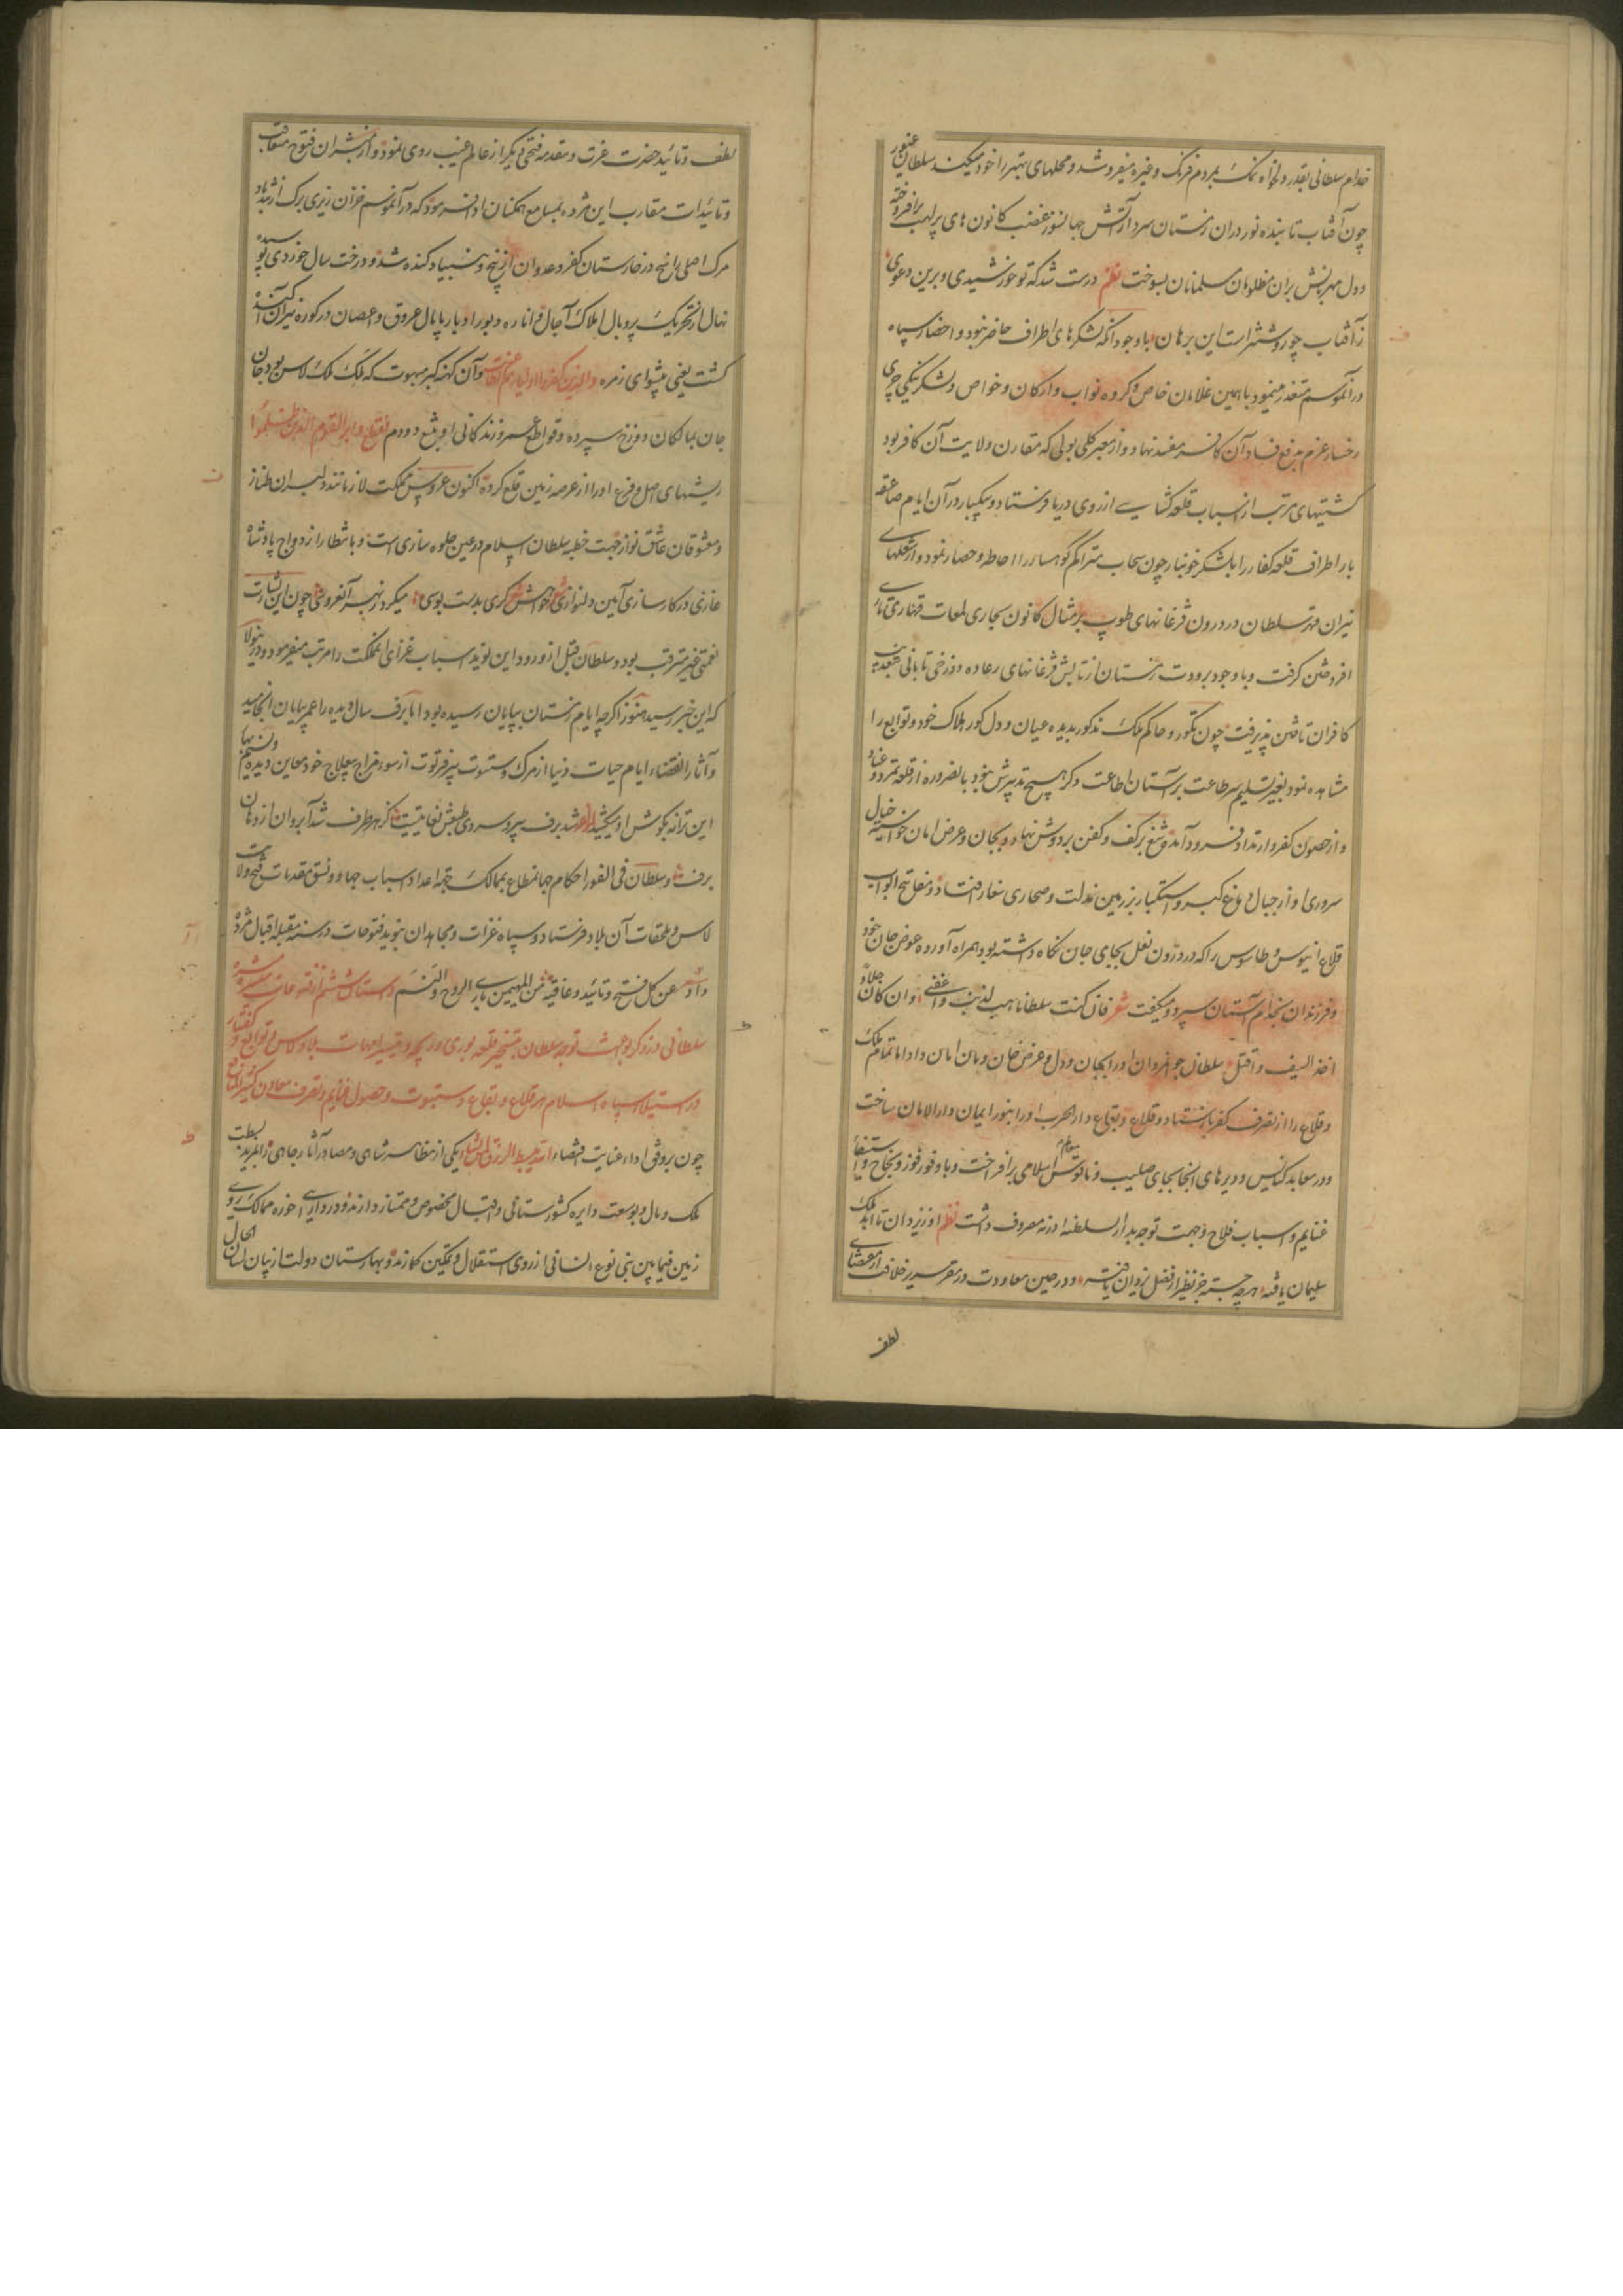 خدام سلطانی بقدر دلخواه نمک بمردم فرنک وغیره میفروشد و محلهای بهتر را خود میکیند سلطان غیور
چون آفتاب تابنده نور دران زمستان سرد از آتش جهانسوز غضب کانون های پر لهب برافروخته
و دل مهربانش بران مظلومان مسلمانان بسوخت نظم درست شد که تو خورشیدی و برین دعوی
ز آفتاب چو روشنتر است این برهان با وجود آنکه لشکرهای اطراف حاضر نبود و احضار سپاه
در آنموسم متعذر مینمود با همین غلامان خاص و کروه نواب و ارکان و خواص و لشکر ینکی چری
رخسار عزم بدفع فساد آن کافر مفسد نهاد و از معبر کلی بولی که مقارن ولایت آن کافر بود
کشتیهای مرتب از اسباب قلعه کشایی از روی دریا فرستاد و بیکبار در آن ایام صاعقه
بار اطراف قلعه کفار را بلشکر خونبار چون سحاب متراکم کوهسار را احاطه و حصار نمود و از شعلهای
نیران قهر سلطان در درون قزغانهای طوپ بر مثال کانون بخاری لمعات قهاری
افروختن کرفت و با وجود برودت زمستان از تابش قزغانهای رعاده دوزخی تابانی
کافران تافتن پذیرفت چون تکور و حاکم ملک مذکور بدیده عیان و دل کور هلاک خود و توابع را
مشاهده نمود بغیر تسلیم سر طاعت بر آستان اطاعت دکر هیچ تدبیرش نبود بالضروره از قلعه تمرد و عناد
و از حصون کفر و ارتداد فرود آمد و تیغ بر کف و کفن بر دوش نهاد و بجان و عرض امان خواسته خیال
سروری او از جبال دماغ کبر و استکبار بر زمین مذلت و صحاری صغار افتاد و مفاتیح ابواب
قلاع اینوس و طاسوس را که در درون لعل بجای جان نکاه داشته بود همراه آورده عوض جان خود
و فرزندان بخدام آستان سپرد و میکفت شعر فان کنت سلطانا فهب لذنب واعفنی وان کان جلاد
اخذ السیف واقتل سلطان جوانمردان او را بجان و دل و عرض خان و مان امان داد اما تمام ملک
و قلاع را از تصرف کفر باز ستاد و قلاع و بقاع دار الحرب او را بنور ایمان دار الامان ساخت
و در معابد کنایس و دیرهای انجا بجای صلیب و ناقوس معالم اسلامی برافراخت و با وفور فوز و نجاح و استیفاء
غنایم و اسباب فلاح وجهت توجه بدار السلطنه ادرنه مصروف داشت نظم او ز یزدان تا ابد ملک
سلیمان یافته هر چه جسته جز نظیر از فضل یزدان یافته و در حین معاودت در مقر سریر خلافت از مقتضای
لطف
لطف و تائید حضرت عزت و مقدمه فتحی دیکر از عالم غیب روی نمود و از مبشران فتوح متعاقب
و تائیدات متقارب این مژده بمسامع همکنان ادا فرمود که در آنموسم خزان ریزی برک از تند باد
مرک اصلی راسخ در خارستان کفر و عدوان از بیخ و بنیاد کنده شد و درخت سال خورده پوسیده
نهال از تحریک پر و بال املاک آجال و اناره دبور ادبار پامال عروق و اغصان در کوره نیران آکنده
کشت یعنی پیشوای زمره والذین کفروا اولیاءهم الطاغوت و آن کهنه کبر مبهوت که ملک ملک لاس بود جان
جان بمالکان دوزخ سپرده و قواطع عمر و زندکانی او بتیغ دو دم فقطع دابر القوم الذین ظلموا
ریشهای اصل و فرع او را از عرصه زمین قلع کرده اکنون عروس مملکت لاز مانند دلبران طناز
و معشوقان عاشق نواز جهت خطبه سلطان اسلام در عین جلوه سازی است و باشطار ازدواج پادشاه
غازی در کار سازی آیین دلنوازی خواستکری بدست بوسی میکرد ز بهر آنعروسی چون این بشارت
نعمتی غیر مترقب بود و سلطان قبل از ورود این نوید اسباب غزای انمملکت را مرتب میفرمود و درینولا
که این خبر رسید هنوز اکرچه ایام زمستان بپایان رسیده بود اما برف سال دیده را عمر بپایان انجامید
و آثار انقضاء ایام حیات دنیا از مرک دستوت پیر فرتوت از سوء مزاج بیعلاج خود معاین دیده
این ترانه بکوش او میکشید شد برف پیر و سردی طبعش بغایتیست کز هر طرف شد آب روان از دهان
برف و سلطان فی الفور احکام جهانمطاع بممالک جهة اعداد اسباب جهاد و نسق مقدمات فتح ولایت
لاس و ملحقات آن بلاد فرستاد و سپاه غزات و مجاهدان بنوید فتوحات در سنه مقبله اقبال مژده
داد عن کل فتح و تائید و عافیة من المهیمن باری الروح والنسم داستان ششم از فتوحات
سلطانی در ذکر بواعث توجه سلطان بتسخیر قلعه بوری و ریجه و تتمه امهات بلاد لاس و توابع
در استیلای سپاه اسلام بر قلاع و بقاع و سیوت و حصول غنایم و تصرف معادن
چون بر وفق اداء عنایت اقتضاء الله یبسط الرزق لمن یشاء یکی از مظاهر شاهی و مصادر آثار رجاهی را بمزید بسطت
ملک و مال و بوسعت دایره کشورستانی و اقبال مخصوص و ممتاز دارند و در دارایی حوزه ممالک روی
زمین فیمابین بنی نوع انسانی از روی استقلال و تمکین کمارند و بهارستان دولت از بیان لسان الحال